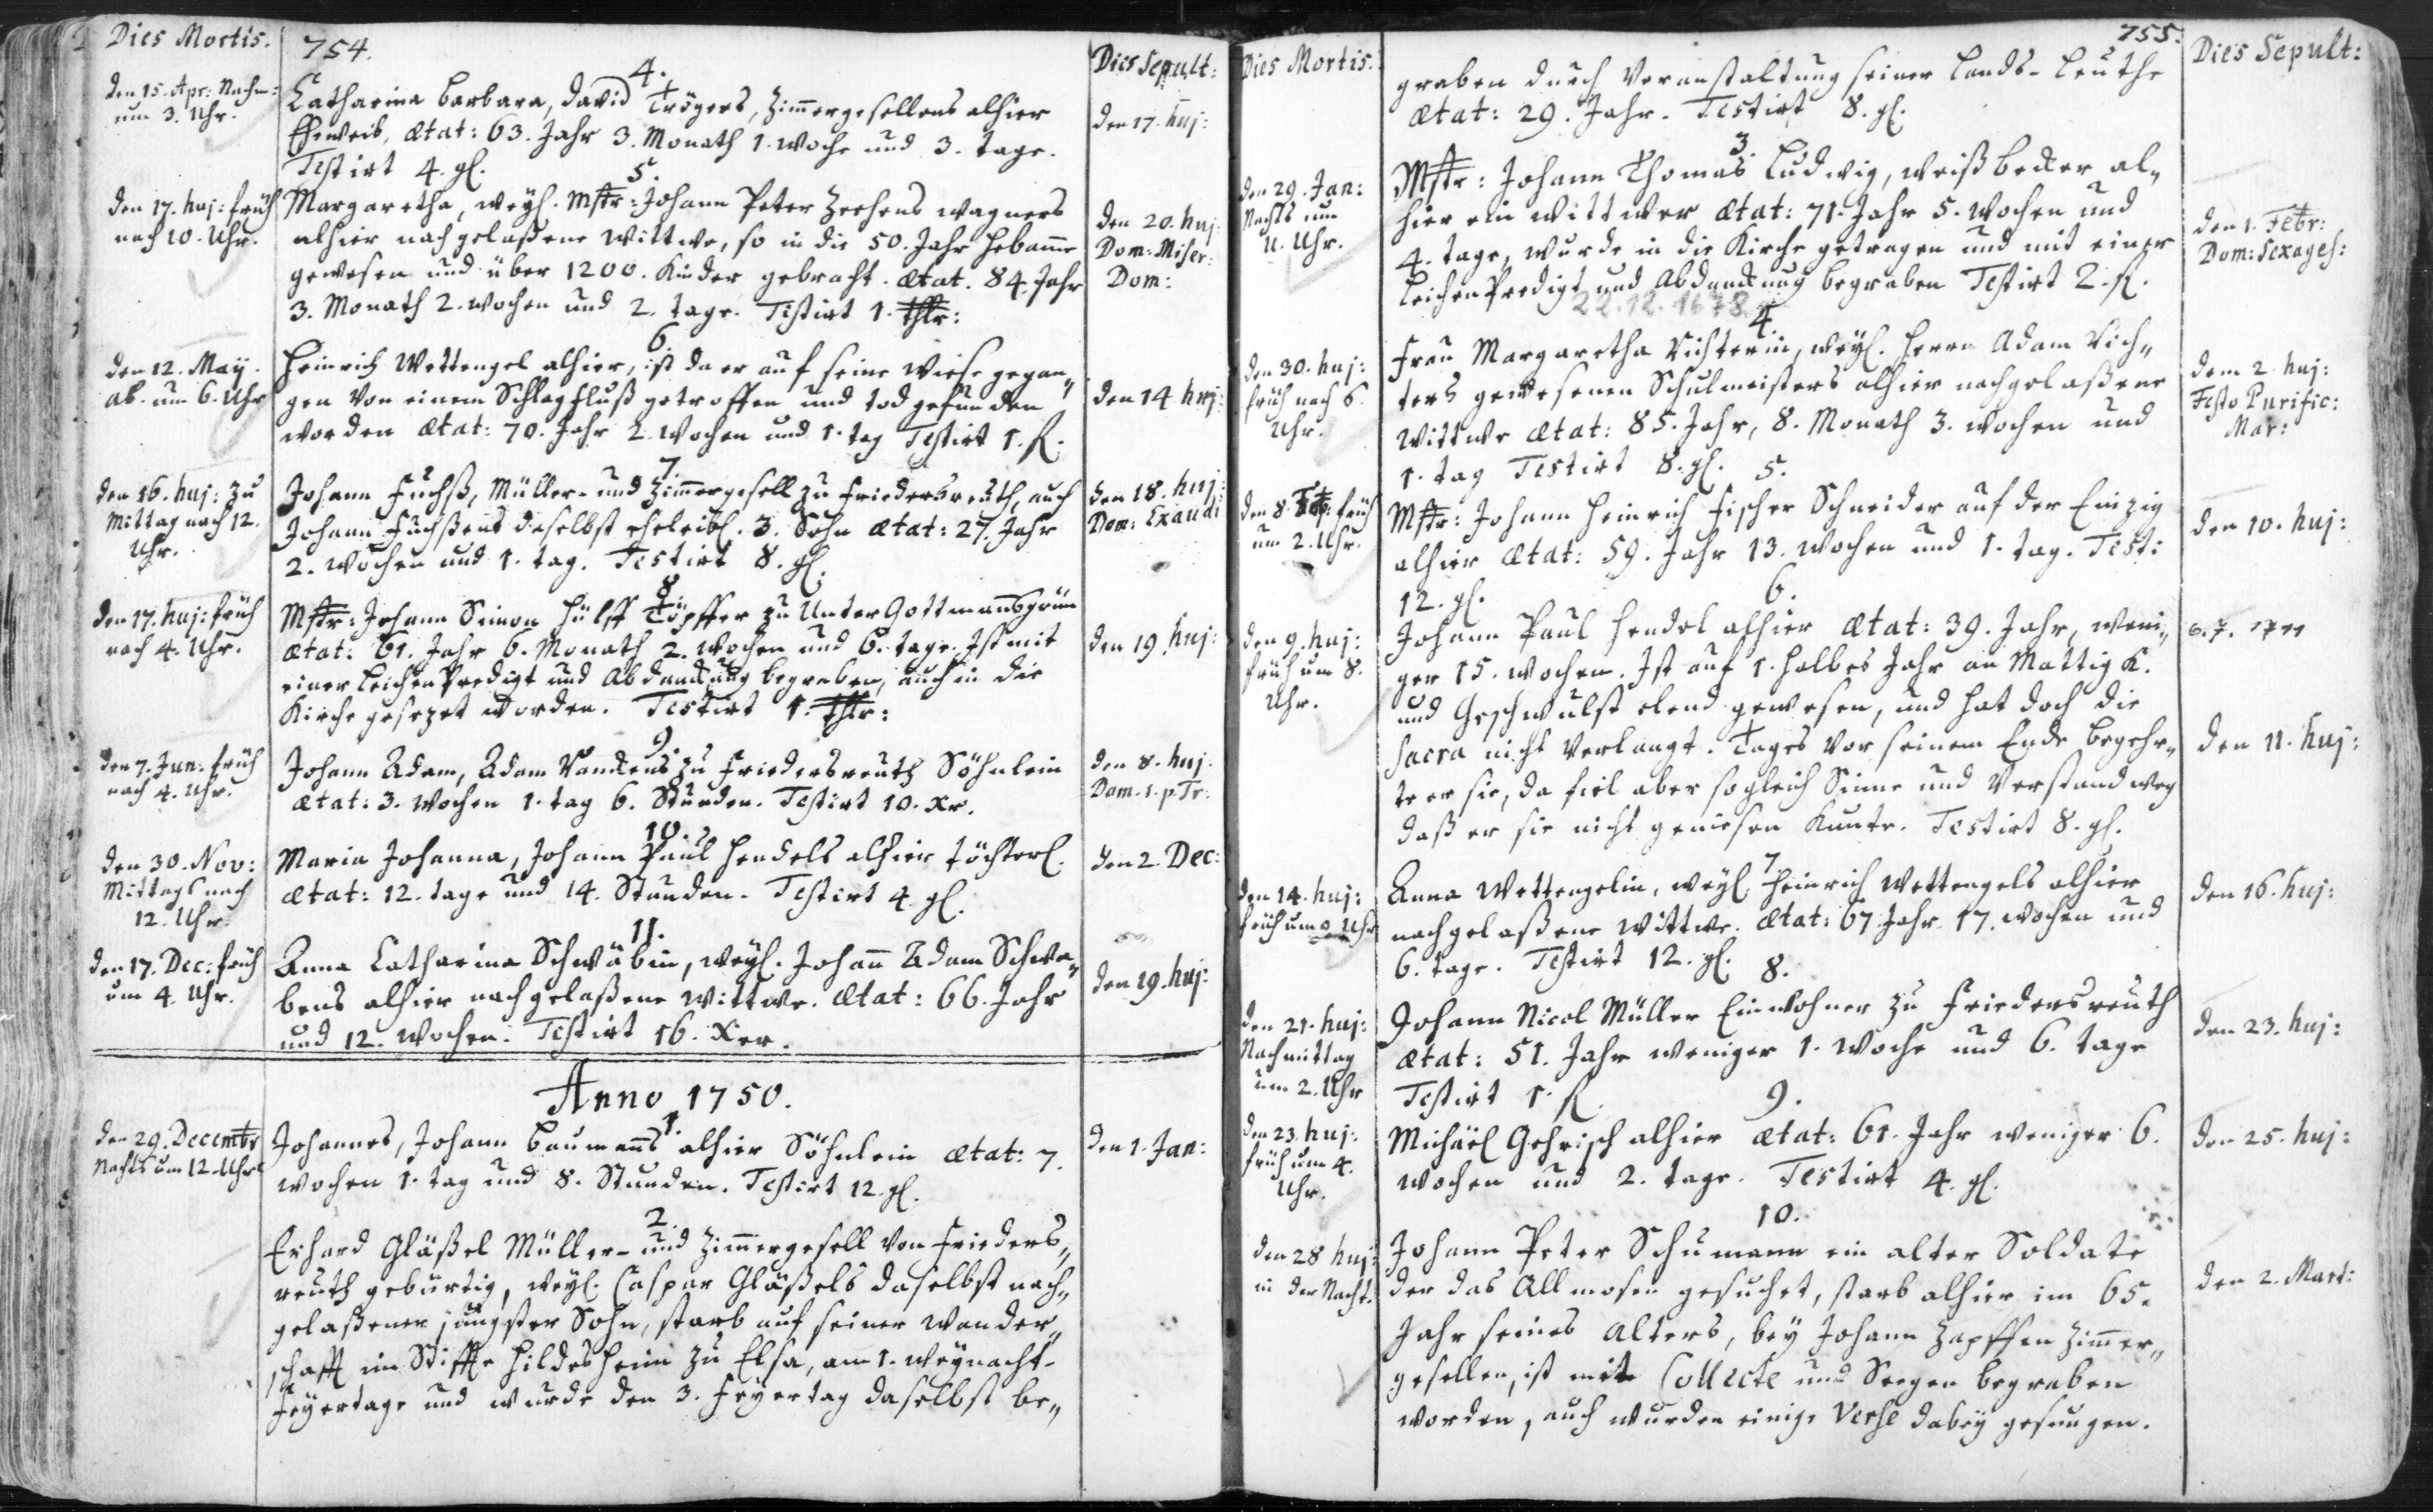 Dies Mortis.
754.
Dies Sepult:
den 15. Apr: Nachm:
um 3. Uhr.
4.
Catharina Barbara, David Trögers, Zimmergesellens alhier
Eheweib, ætat: 63. Jahr 3. Monath 1. Woche und 3. tage.
Testirt 4. gl.
den 17. huj:
5.
den 17. huj: früh
nach 10. Uhr.
Margaretha, weyl. Mstr: Johann Peter Zeehens Wagners
alhier nachgelaßene Wittwe, so in die 50. Jahr Hebamme
gewesen und über 1200. Kinder gebracht. ætat. 84. Jahr
3. Monath 2. Wochen und 2. tage. Testirt 1. thlr:
den 20. huj:
Dom: Miser:
Dom:
6.
den 12. Maÿ.
ab. um 6. Uhr
Heinrich Wettengel alhier, ist da er auf seine Wiese gegan„
gen von einem Schlagfluß getroffen und tod gefunden
worden ætat: 70. Jahr 2. Wochen und 1. tag Testirt 1. fl.
den 14 huj:
7.
den 16. huj: zu
Mittag nach 12.
Uhr.
Johann Fuchß, Müller- und Zimmergesell zu Friedersreuth, auch
Johann Fuchßens daselbst eheleibl. 3. Sohn ætat: 27. Jahr
2. Wochen und 1. tag. Testirt 8. gl.
den 18. huj:
Dom: Exaudi
8.
den 17. huj: früh
nach 4. Uhr.
Mstr: Johann Simon Hülff Töpffer zu Unter Gottmannsgrün
ætat: 61. Jahr 6. Monath 2. Wochen und 6. tage. Ist mit
einer Leichen Predigt und Abdanckung begraben, auch in die
Kirche gesezet worden. Testirt 1. thlr:
den 19. huj:
9.
den 7. Jun: früh
nach 4. Uhr.
Johann Adam, Adam Vanckens zu Friedersreuth Söhnlein
ætat: 3. Wochen 1. tag 6. Stunden. Testirt 10. xr.
den 8. huj:
Dom. 1. p. Tr:
10.
den 30. Nov:
Mittags nach
12. Uhr.
Maria Johanna, Johann Paul Hendels alhier Töchterl.
ætat: 12. tage und 14. Stunden. Testirt 4. gl.
den 2. Dec:
11.
den 17. Dec: früh
um 4. Uhr.
Anna Catharina Schwäbin, weyl. Johann Adam Schwa„
bens alhier nachgelaßene Wittwe. ætat: 66. Jahr
und 12. Wochen. Testirt 16. Xer.
den 19. huj:
Anno 1750.
1.
den 29. Decembr
Nachts um 12. Uhr
Johannes, Johann Baumanns alhier Söhnlein ætat: 7.
Wochen 1. tag und 8. Stunden. Testirt 12. gl.
den 1. Jan:
2.
Erhard Gläßel Müller- und Zimmergesell von Frieders„
reuth gebürtig, weyl. Caspar Gläßels daselbst nach„
gelaßener jüngster Sohn, starb auf seiner Wander„
schafft im Stiffte Hildesheim zu Elsa, am 1. Weynacht-
Feyertage und wurde den 3. Feyertag daselbst be„
Dies Mortis.
755.
Dies Sepult:
graben durch Veranstaltung seiner Lands-Leuthe
ætat: 29. Jahr. Testirt 8. gl.
3.
den 29. Jan:
Nachts um
11. Uhr.
Mstr: Johann Thomas Ludwig, Weißbecker al„
hier ein Wittwer ætat: 71. Jahr 5. Wochen und
4. tage, wurde in die Kirche getragen und mit einer
Leichen Predigt und Abdanckung begraben Testirt 2. fl.
22.12.1678
den 1. Febr:
Dom: Sexages:
4.
den 30. huj:
früh nach 6.
Uhr.
Frau Margaretha Richterin, weyl. Herrn Adam Rich„
ters gewesenen Schulmeisters alhier nachgelaßene
Wittwe ætat: 85. Jahr, 8. Monath 3. Wochen und
1. tag Testirt 8. gl.
dem 2. huj:
Festo Purific:
Mar:
5.
den 8. Feb: früh
um 2. Uhr.
Mstr: Johann Heinrich Fischer Schneider auf der Einzig
alhier ætat: 59. Jahr 13. Wochen und 1. tag. Testi:
12. gl.
den 10. huj:
6.
den 9. huj:
früh um 8.
Uhr.
Johann Paul Hendel alhier ætat: 39. Jahr, weni„
ger 15. Wochen. Ist auf 1. halbes Jahr an Mattigk.
und Geschwulst elend gewesen, und hat doch die
Sacra nicht verlangt. Tages vor seinem Ende begehr„
te er sie, da fiel aber sogleich Sinne und Verstand weg
daß er sie nicht geniesen kunte. Testirt 8. gl.
6.7. 1711
den 11. huj:
7.
den 14. huj:
früh um Uhr
Anna Wettengelin, weyl. Heinrich Wettengels alhier
nachgelaßene Wittwe. ætat: 67. Jahr 17. Wochen und
6. tage. Testirt 12. gl.
den 16. huj:
8.
den 21. huj:
Nachmittag
um 2. Uhr
Johann Nicol Müller Einwohner zu Friedersreuth
ætat: 51. Jahr weniger 1. Woche und 6. tage
Testirt 1. fl.
den 23. huj:
9.
den 23. huj:
früh um 4.
Uhr.
Michäel Gehrisch alhier ætat: 61. Jahr weniger 6.
Wochen und 2. tage. Testirt 4. gl.
den 25. huj:
10.
den 28 huj:
in der Nacht.
Johann Peter Schumann ein alter Soldate
der das Allmosen gesuchet, starb alhier im 65.
Jahr seines Alters, bey Johann Zapffen Zimmer„
gesellen, ist mit Collecte und Seegen begraben
worden, auch wurden einige Verse dabey gesungen.
den 2. Mart: